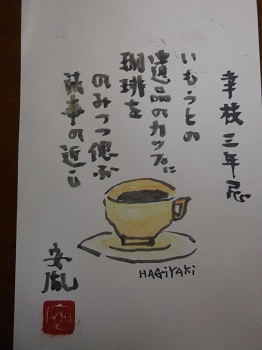 幸枝三年忌
いもうとの
遺品のカップに
珈琲を
のみつつ偲ぶ
法事の近し
HAGiYAKi
安